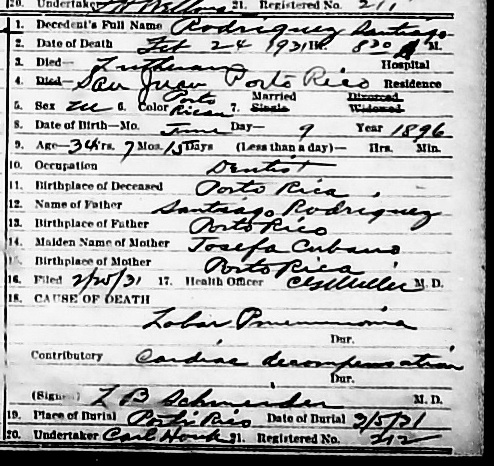 20. Undertaker 21. Registered No. 211
1. Decedent's Full Name Rodriguez Santiago
2. Date of Death Feb 24 1931 Hr. 830 A M.
3. Died— Lutheran Hospital
4. Died— San Juan Porto Rico Residence
5. Sex M 6. Color Porto Rican 7. Married Single Divorced Widowed
8. Date of Birth—Mo. June Day— 9 Year 1896
9. Age— 34 Yrs. 7 Mos. 15 Days (Less than a day)— Hrs. Min.
10. Occupation Dentist
11. Birthplace of Deceased Porto Rica
12. Name of Father Santiago Rodriguez
13. Birthplace of Father Porto Rico
14. Maiden Name of Mother Josefa Cubano
15. Birthplace of Mother Porto Rica
16. Filed 2/25/31 17. Health Officer M. D.
18. CAUSE OF DEATH
Lobar Pneumonia
Dur.
Contributory Cardiac decompensation
Dur.
(Signed) L B Schneider M. D.
19. Place of Burial Porto Rico Date of Burial 3/5/31
20. Undertaker Carl Houk 21. Registered No. 212